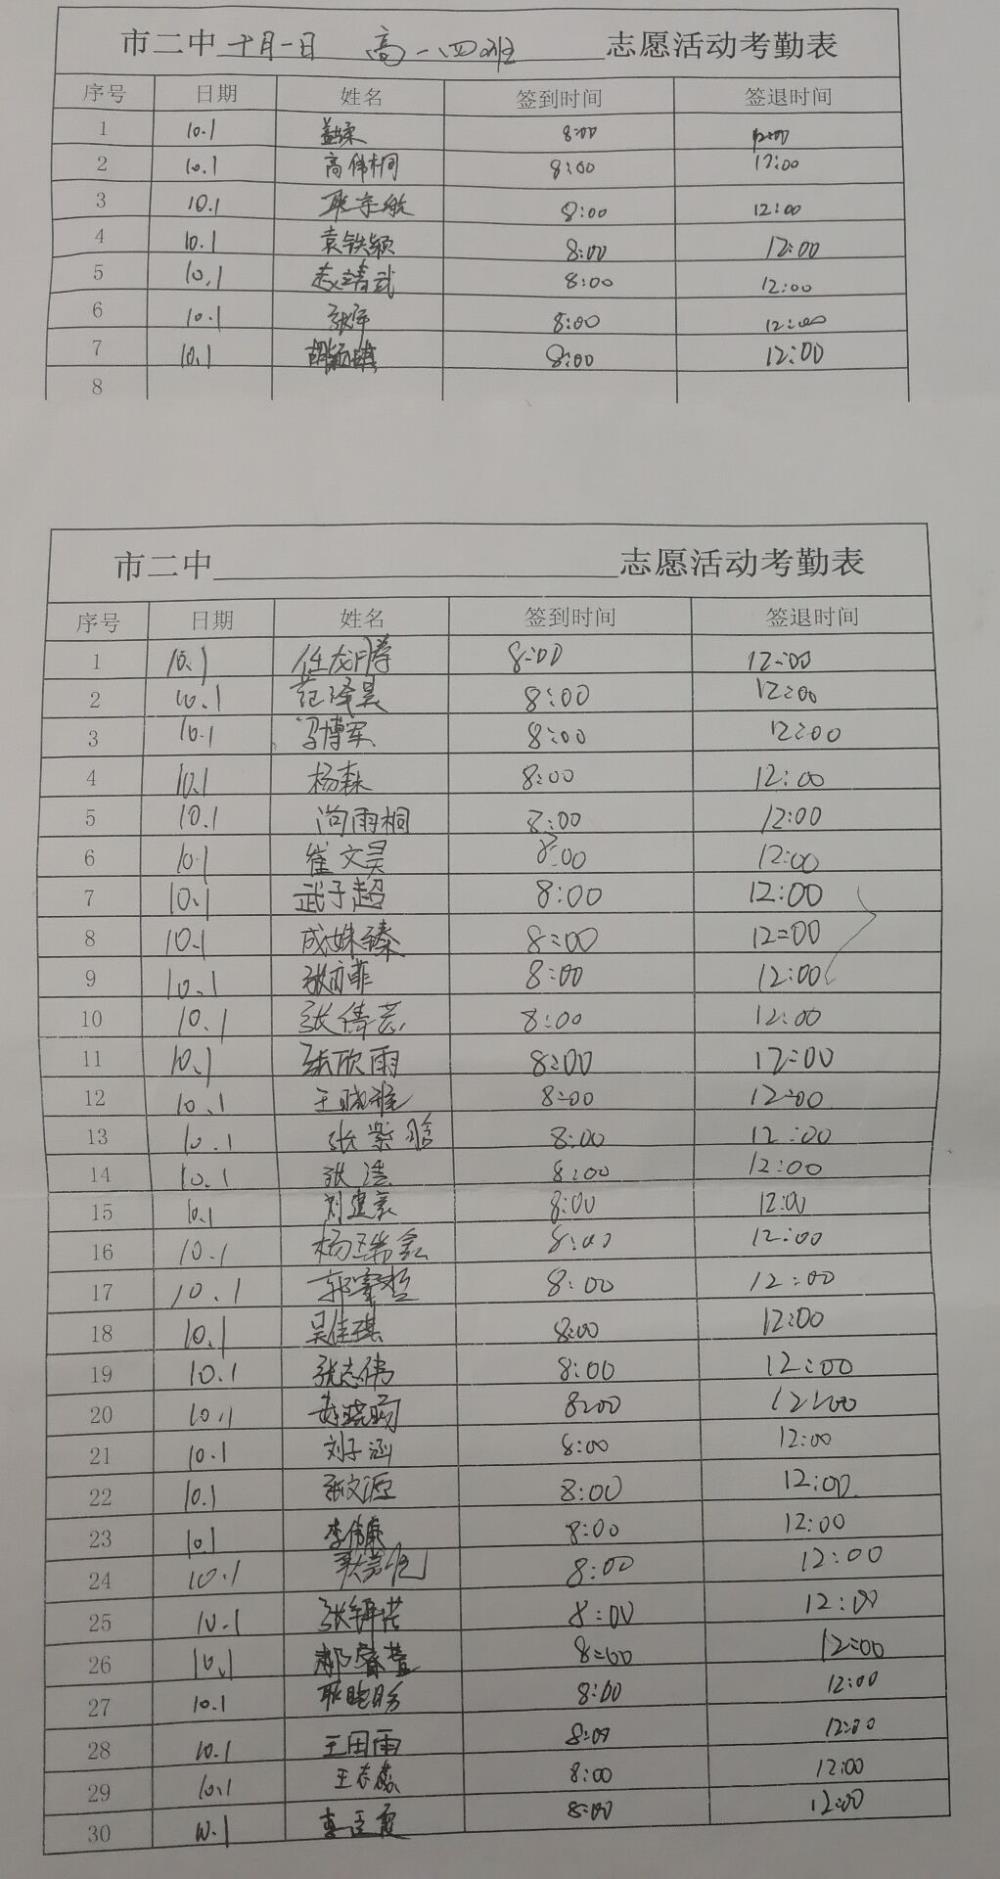 市二中 十月一日 高一四班 志愿活动考勤表
序号 日期 姓名 签到时间 签退时间
1 10.1 8:00 12:00
2 10.1 高伟桐 8:00 12:00
3 10.1 耿宇航 8:00 12:00
4 10.1 袁铁颖 8:00 12:00
5 10.1 8:00 12:00
6 10.1 张宇 8:00 12:00
7 10.1 8:00 12:00
8
市二中 志愿活动考勤表
序号 日期 姓名 签到时间 签退时间
1 10.1 任龙腾 8:00 12:00
2 10.1 范泽昊 8:00 12:00
3 10.1 冯博军 8:00 12:00
4 10.1 杨森 8:00 12:00
5 10.1 尚雨桐 8:00 12:00
6 10.1 崔文昊 8:00 12:00
7 10.1 武子超 8:00 12:00
8 10.1 成姝臻 8:00 12:00
9 10.1 张亦菲 8:00 12:00
10 10.1 8:00 12:00
11 10.1 张欣雨 8:00 12:00
12 10.1 王晓雅 8:00 12:00
13 10.1 张紫晗 8:00 12:00
14 10.1 张浩 8:00 12:00
15 10.1 8:00 12:00
16 10.1 杨瑞鑫 8:00 12:00
17 10.1 郭豪哲 8:00 12:00
18 10.1 吴佳琪 8:00 12:00
19 10.1 张志伟 8:00 12:00
20 10.1 8:00 12:00
21 10.1 刘子涵 8:00 12:00
22 10.1 张文源 8:00 12:00
23 10.1 李伟康 8:00 12:00
24 10.1 8:00 12:00
25 10.1 8:00 12:00
26 10.1 8:00 12:00
27 10.1 8:00 12:00
28 10.1 王田雨 8:00 12:00
29 10.1 8:00 12:00
30 10.1 8:00 12:00